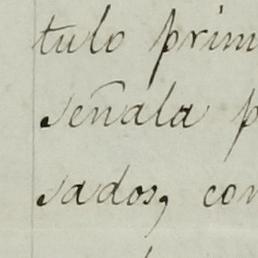 tulo prim
señala p
sados, con